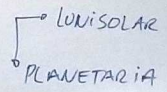 LUNISOLAR
PLANETARIA